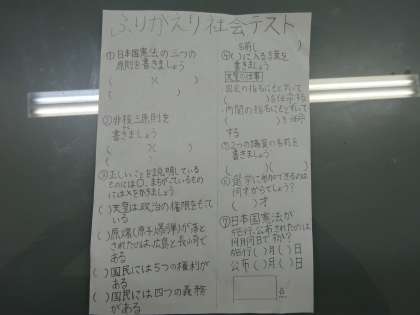 ふりかえり社会テスト
①日本国憲法の三つの
原則を書きましょう
(　　　)(　　　)
(　　　)
②非核三原則を
書きましょう
(　　　)(　　　)
(　　　)
③正しいことを説明している
ものには○、まちがっているもの
には×をかきましょう
( )天皇は政治の権限をもて
いる
( )原爆(原子爆弾)が落と
されたのは、広島と長崎で
ある
( )国民には5つの権利が
ある
( )国民には四つの義務
がある
名前(
④( )に入る言葉を
書きましょう
天皇の仕事
国会の指名にもとずいて
(　　　)を任命する
内閣の指名にもとずいて
(　　　)を任命
する
⑤2つの議員の名前を
書きましょう
(　　　)(　　　)
⑥選挙に参加できるのは
何才からでしょう?
(　　)才
⑦日本国憲法が
施行、公布されたのは
何月何日でしょう?
施行( )月( )日
公布( )月( )日
点